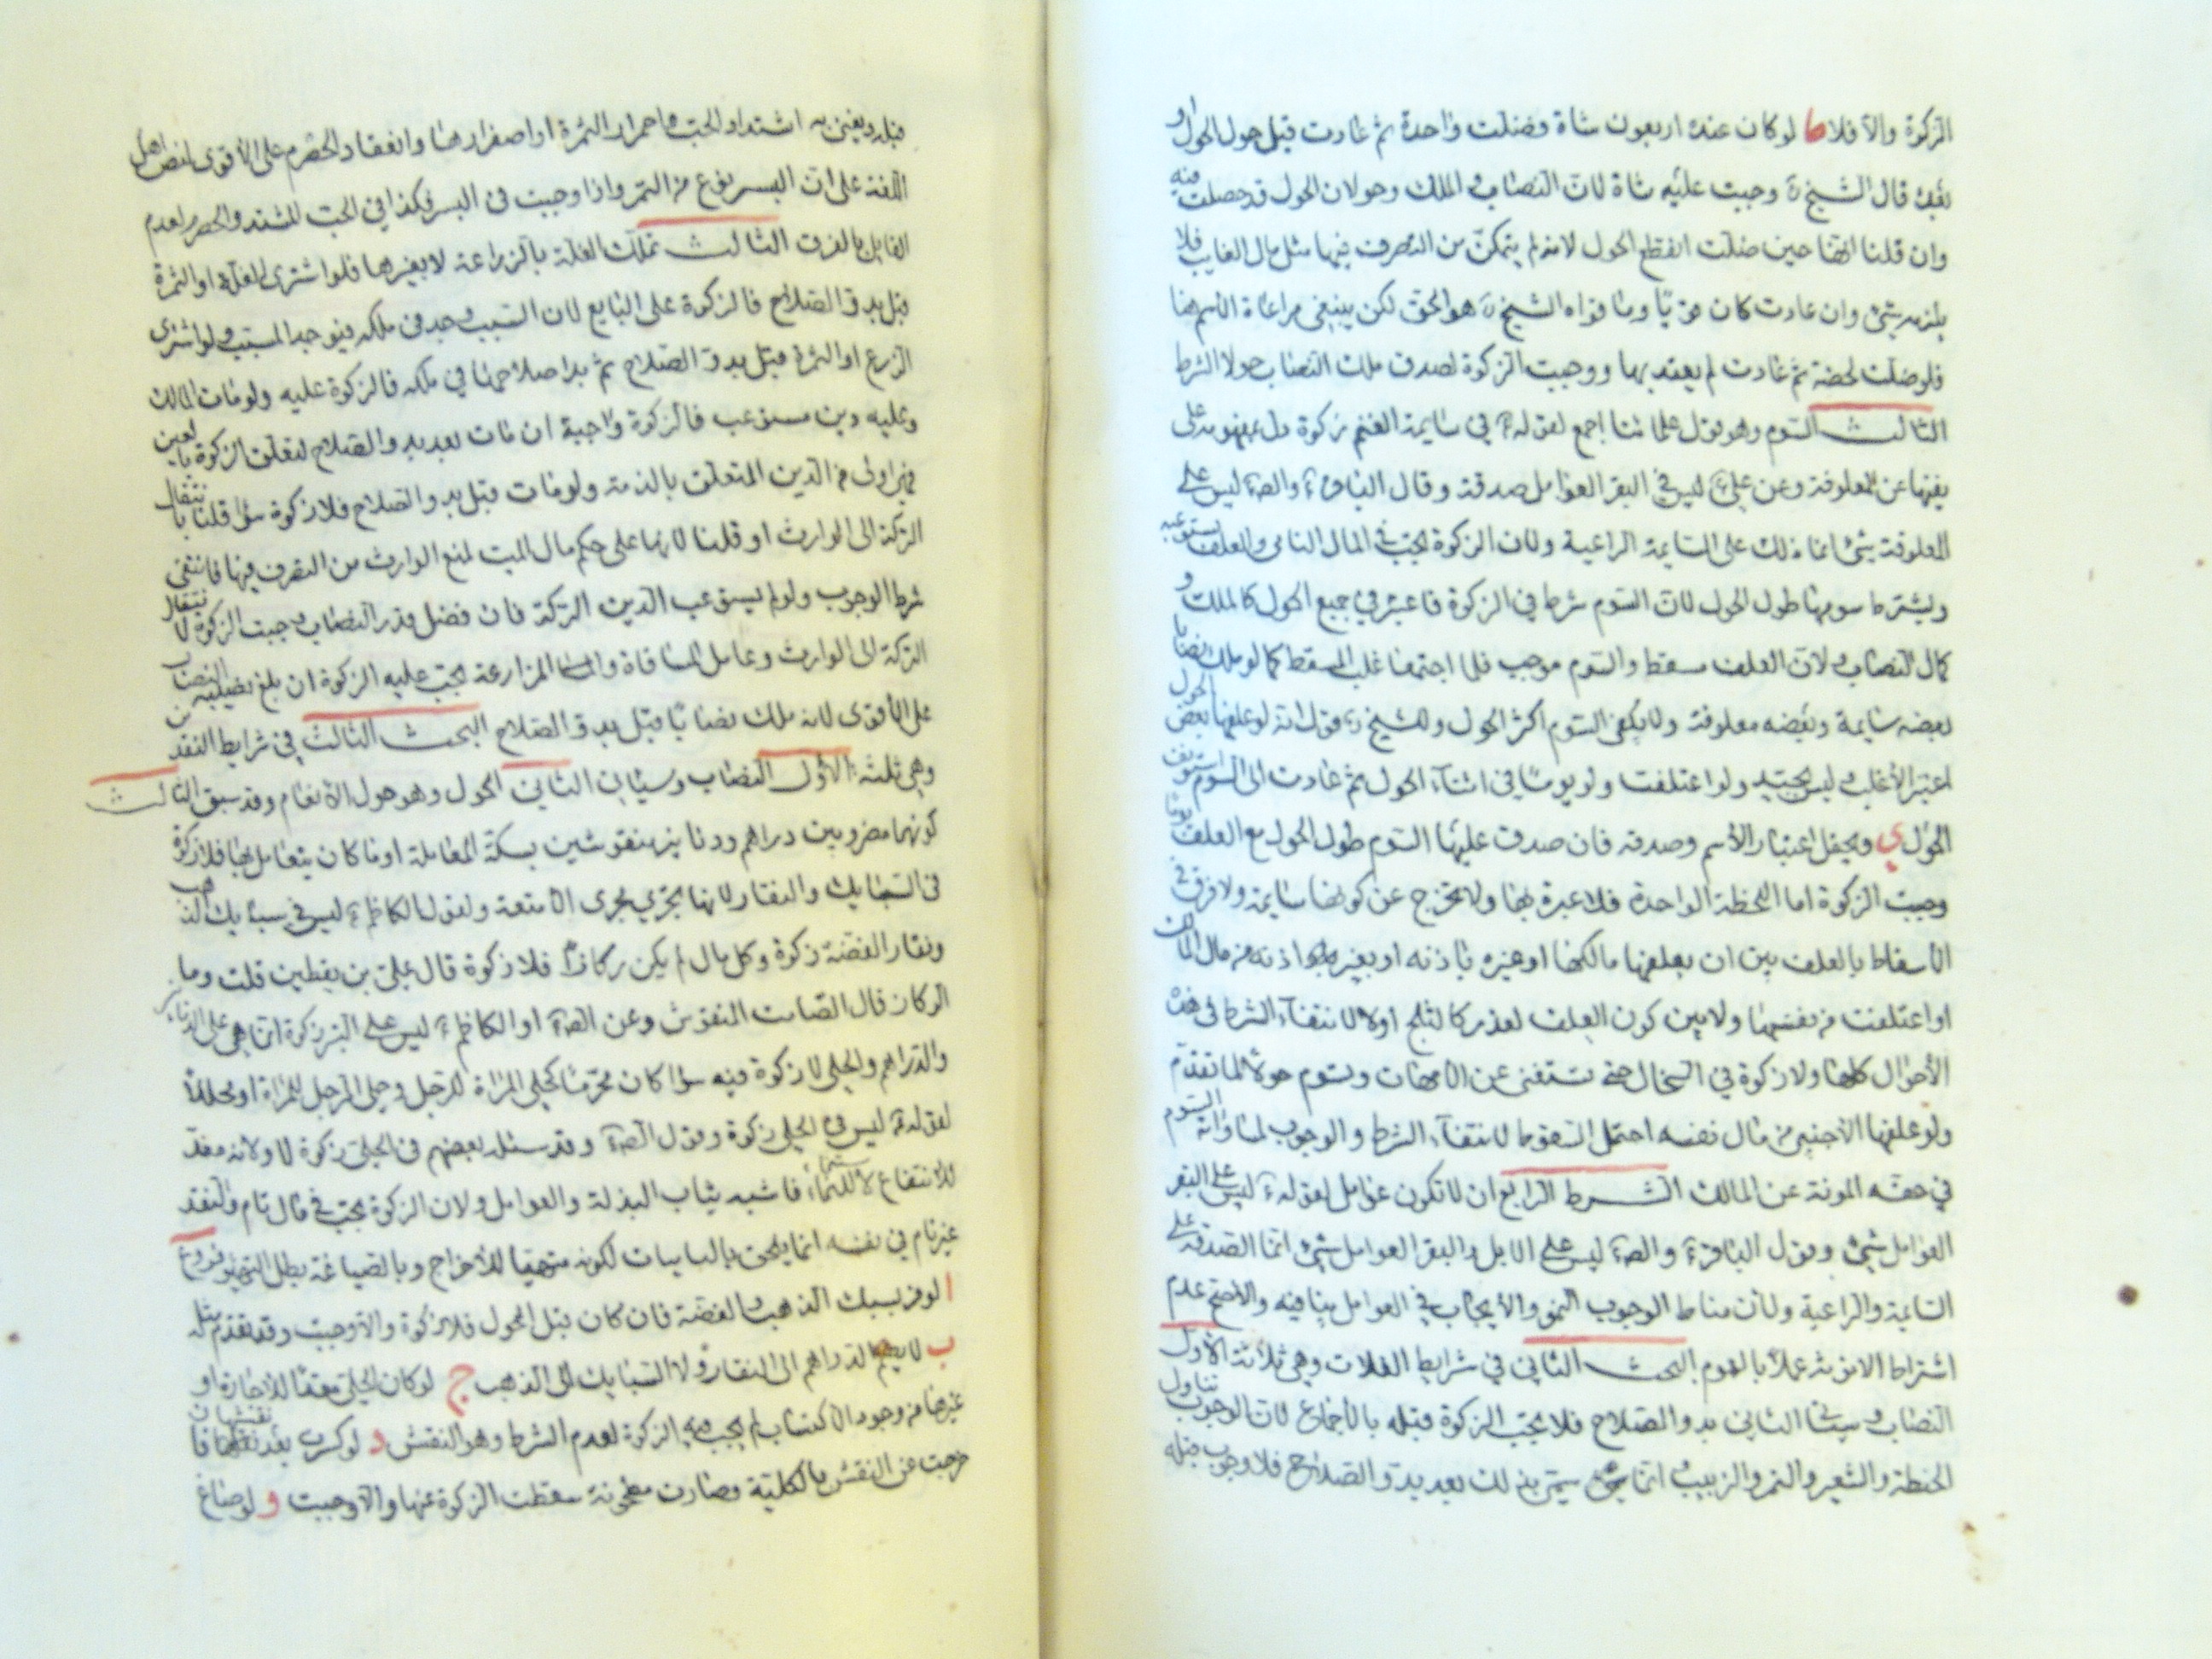 الزكوة والا فلا ط لو كان عنده اربعون شاة فضلت واحدة ثم عادت قبل حول الحول او
بعده قال الشيخ ره وجبت عليه شاة لان النصاب و الملك وحولان الحول قد حصلت فيه
وان قلنا انها حين ضلت انقطع الحول لانه لم يتمكن من التصرف فيها مثل مال الغايب فلا
يلزمه شئ وان عادت كان قويا وما قواه الشيخ ره هو الحق لكن ينبغي مراعاة الاسم هنا
فلو ضلت لحضة ثم عادت لم يعتد بها ووجبت الزكوة لصدق ملك النصاب حولا الشرط
الثالث السوم وهو قول علمائنا اجمع لقوله ع في سايمة الغنم زكوة دل بمفهومه على
نفيها عن المعلوفة وعن علي ع ليس في البقر العوامل صدقة وقال الباقر ع والص ع ليس على
المعلوفة شئ انما ذلك على السايمة الراعية ولان الزكوة تجب في المال النامي والعلف يستوعبه
ويشترط سومها طول الحول لان السوم شرط في الزكوة فاعتبر في جميع الحول كالملك و
كمال النصاب ولان العلف مسقط والسوم موجب فلما اجتمعا غلب المسقط كما لو ملك نصابا
بعضه سايمة وبعضه معلوفة ولا يكفي السوم اكثر الحول وللشيخ ره قول انه لو علفها بعض الحول
اعتبر الاغلب وليس بجيد ولو اعتلفت ولو يوما في اثناء الحول ثم عادت الى السوم استونف
الحول ي ويحتمل اعتبار الاسم وصدقه فان صدق عليها السوم طول الحول مع العلف يوما
وجبت الزكوة اما اللحظة الواحدة فلا عبرة بها ولا تخرج عن كونها سايمة ولا فرق في
الاسقاط بالعلف بين ان يعلفها مالكها او غيره باذنه او بغير اذنه من مال المالك
او اعتلفت من نفسها ولا بين كون العلف لعذر كالثلج او لا لانتفاء الشرط في هذه
الأحوال كلها ولا زكوة في السخال حتى تستغنى عن الامهات وتسوم حولا لما تقدم
ولو علفها الأجنبي من مال نفسه احتمل السقوط لانتفاء الشرط والوجوب لمساواته السوم
في خفة المونة عن المالك الشرط الرابع ان لا تكون عوامل لقوله ع ليس على البقر
العوامل شئ وقول الباقر ع والص ع ليس على الابل والبقر العوامل شئ انما الصدقة على
السايمة والراعية ولان مناط الوجوب النمو والايجاب في العوامل ينافيه والاصح عدم
اشتراط الانوثة عملا بالعموم البحث الثاني في شرايط الغلات وهي ثلاثة الأول
النصاب و سياتي الثاني بدو الصلاح فلا تجب الزكوة قبله بالاجماع لان الوجوب تناول
الحنطة والشعير والتمر والزبيب انما يسمى بذلك بعد بدو الصلاح فلا وجوب قبله
قبله ويعنى به اشتداد الحب و احمرار الثمرة او اصفرارها وانعقاد الحصرم على الأقوى لنص اهل
اللغة على ان البسر نوع من التمر واذا وجبت في البسر فكذا في الحب المشتد والحصرم لعدم
القايل بالفرق الثالث تملك الغلة بالزراعة لا بغيرها فلو اشترى الغلة او الثمرة
قبل بدو الصلاح فالزكوة على البايع لان السبب وجد في ملكه فيوجد المسبب ولو اشترى
الزرع او الثمرة قبل بدو الصلاح ثم بدا صلاحها في ملكه فالزكوة عليه ولو مات المالك
وعليه دين مستوعب فالزكوة واجبة ان مات بعد بدو الصلاح لتعلق الزكوة بالعين
فهي اولى من الدين المتعلق بالذمة ولو مات قبل بدو الصلاح فلا زكوة سواء قلنا بانتقال
التركة الى الوارث او قلنا لا نها على حكم مال الميت لمنع الوارث من التصرف فيها فانتفى
شرط الوجوب ولو لم يستوعب الدين التركة فان فضل قدر النصاب وجبت الزكوة لانتقال
التركة الى الوارث وعامل المساقاة و المزارعة تجب عليه الزكوة ان بلغ نصيبه النصاب
على الأقوى لانه ملك نصابا قبل بدو الصلاح البحث الثالث في شرايط النقدين
وهي ثلثة الأول النصاب وسياتي الثاني الحول وهو حول الأنعام وقد سبق الثالث
كونهما مضروبين دراهم ودنانير منقوشين بسكة المعاملة او ما كان يتعامل بها فلا زكوة
في السبايك والنقار لانها تجري مجرى الأمتعة ولقول الكاظم ع ليس في سبايك الذهب
ونقار الفضة زكوة وكل مال لم يكن ركازا فلا زكوة قال علي بن يقطين قلت وما
الركاز قال الصامت المنقوش وعن الص ع او الكاظم ع ليس على التبر زكوة انما هي على الدنانير
والدراهم والحلي لا زكوة فيه سواء كان محرما كحلي المراة للرجل وحلي الرجل للمراة او محللا
لقوله ع ليس في الحلي زكوة وقول الص ع وقد سئله بعضهم في الحلي زكوة لا ولانه معد
للانتفاع لا للنماء فاشبه ثياب البذلة والعوامل ولان الزكوة تجب في مال نام والنقد
غير نام في نفسه انما يلحق بالناميات لكونه متهيئا للأخراج وبالصياغة بطل التهيؤ فروع
ا لو فر بسبك الذهب والفضة فان كان قبل الحول فلا زكوة والا وجبت وقد تقدم مثله
ب لا يضم الدراهم الى النقار ولا السبايك الى الذهب ج لو كان الحلي معدا للاجارة او
غيرها من وجوه الاكتساب لم يجب فيه الزكوة لعدم الشرط وهو النقش د لو كسرت بعد نقشها فان
خرجت عن النقش بالكلية وصارت سقطت الزكوة عنها والا وجبت و لو صاغ